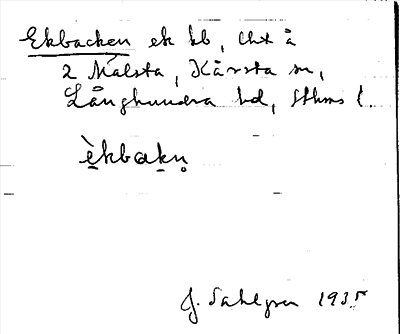 Ekbacken ek kb, lht å
2 Malsta, Kårsta sn,
Långhundra hd, Sthms l.
ὲkbakn̥
J. Sahlgren 1935